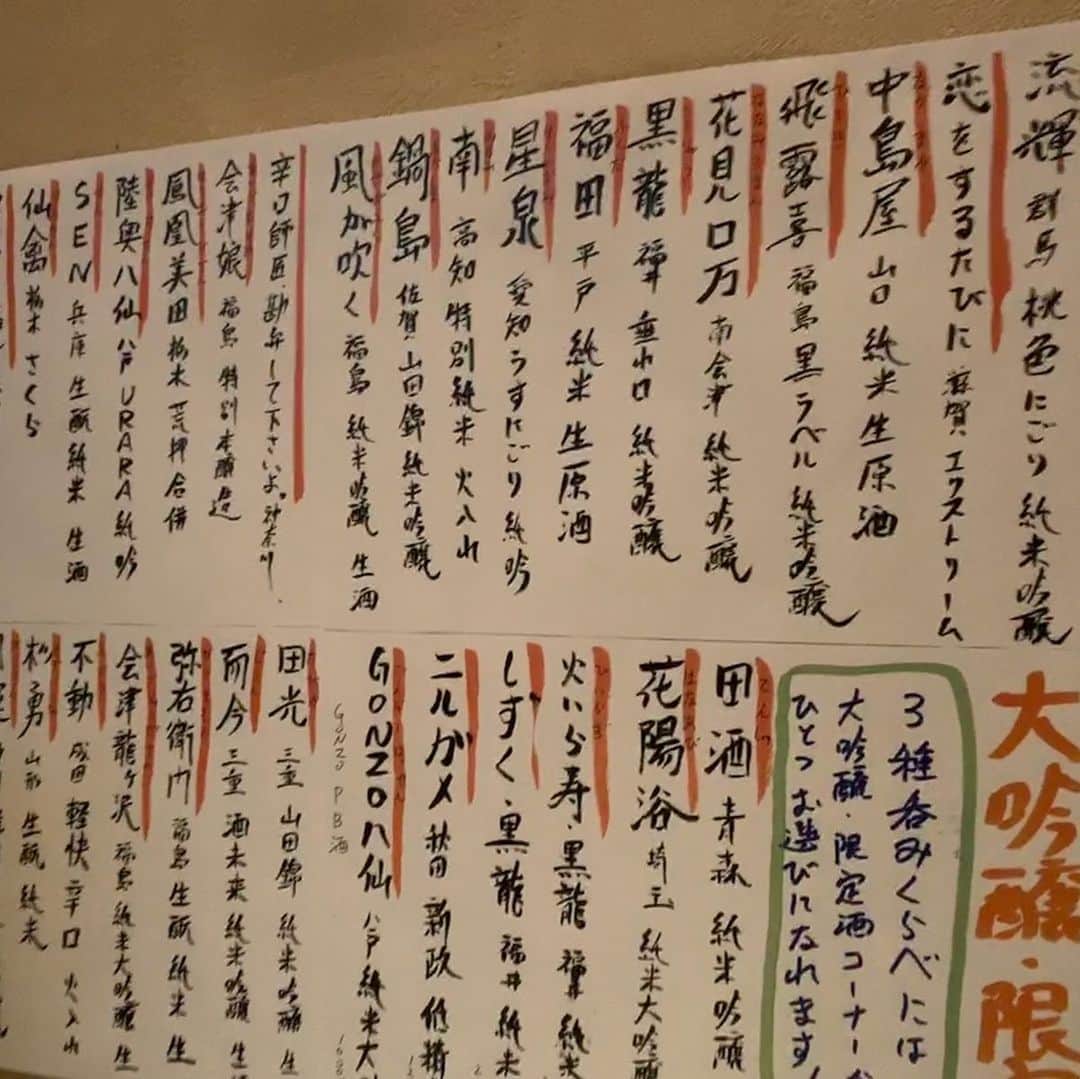 流輝 群馬 桃色にごり 純米吟醸
恋をするたびに 滋賀 エクストリーム
中島屋 山口 純米生原酒
飛露喜 福島 黒ラベル 純米吟醸
花見ロ万 南会津 純米吟醸
黒龍 福井 垂れ口 純米吟醸
福田 平戸 純米生原酒
星泉 愛知 うすにごり 純吟
南 高知 特別純米 火入れ
鍋島 佐賀 山田錦 純米吟醸
風が吹く 福島 純米吟醸 生酒
辛口師匠・勘弁して下さいよ。神奈川
会津娘 福島 特別本醸造
鳳凰美田 栃木 荒押合併
陸奥八仙 八戸 URARA 純吟
SEN 兵庫 生酛純米 生酒
仙禽 栃木 さくら
大吟醸・限
3種呑みくらべには
大吟醸・限定酒コーナー
ひとつお選びになれます
田酒 青森 純米吟醸
花陽浴 埼玉 純米大吟醸
火いら寿・黒龍 福井 純米
しずく・黒龍 福井 純米
ニルガメ 秋田 新政 低精
GONZO八仙 八戸 純米大
GONZO PB酒
田光 三重 山田錦 純米吟醸 生
而今 三重 酒未来 純米吟醸 生
弥右衛門 福島 生酛純米 生
会津龍ヶ沢 福島 純米大吟醸 生
不動 成田 軽快辛口 火入れ
松勇 山形 生酛 純米